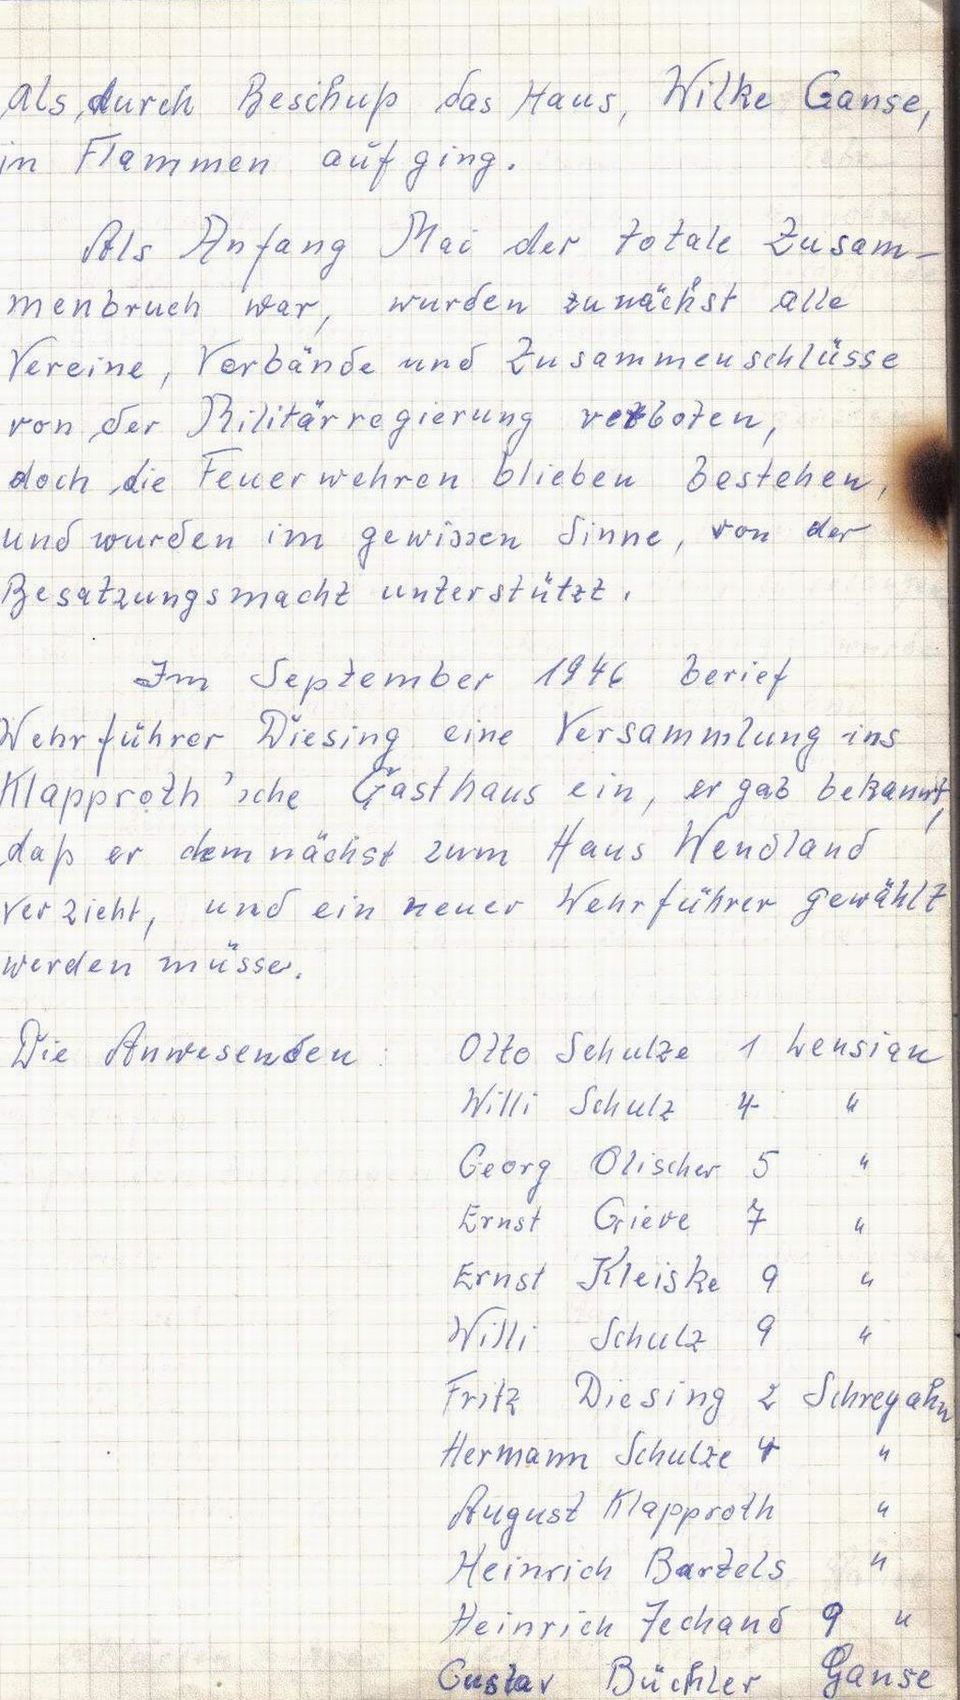 Als durch Beschuß das Haus, Wilke Ganse,
in Flammen aufging.
Als Anfang Mai der totale Zusam-
menbruch war, wurden zunächst alle
Vereine, Verbände und Zusammenschlüsse
von der Militärregierung verboten,
doch die Feuerwehren blieben bestehen,
und wurden im gewissen Sinne, von der
Besatzungsmacht unterstützt.
Im September 1946 berief
Wehrführer Diesing eine Versammlung ins
Klapproth'sche Gasthaus ein, er gab bekannt,
daß er demnächst zum Haus Wendland
verzieht, und ein neuer Wehrführer gewählt
werden müsse.
Die Anwesenden: Otto Schulze 1 Lensian
Willi Schulz 4 "
Georg Olischer 5 "
Ernst Grieve 7 "
Ernst Kleiske 9 "
Willi Schulz 9 "
Fritz Diesing 2 Schreyahn
Hermann Schulze 4 "
August Klapproth "
Heinrich Bartels "
Heinrich Jechand 9 "
Gustav Büchler Ganse